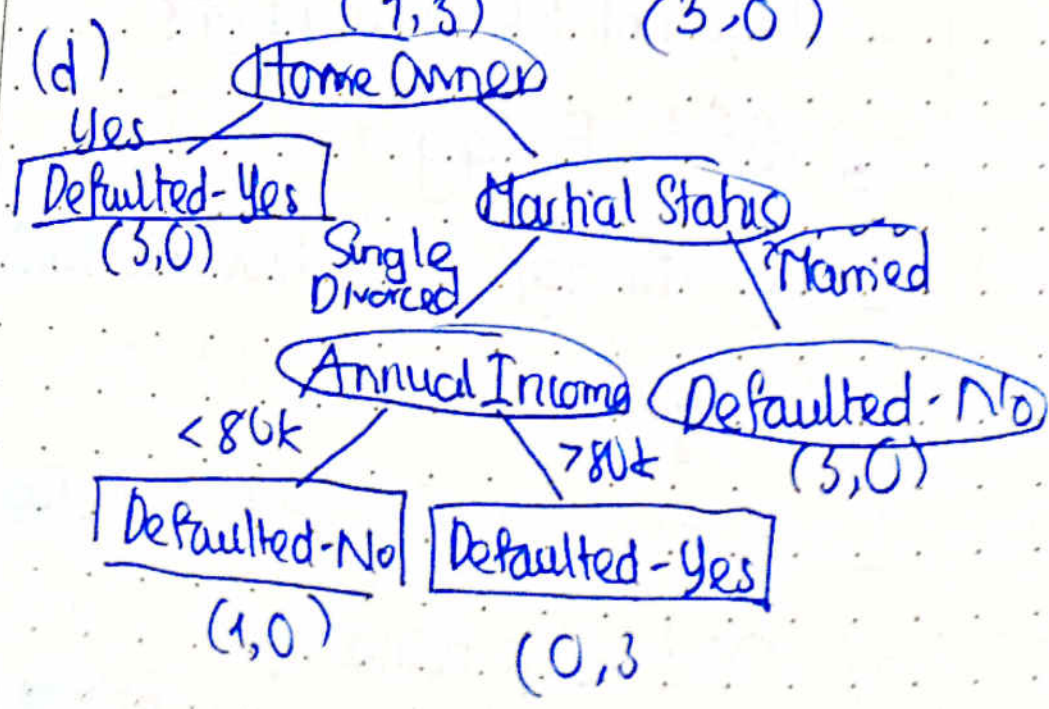 (1,3) (3,0)
(d) Home Owner
Yes
Defaulted-Yes
Martial Status
(3,0)
Single,
Divorced
Married
Annual Income
Defaulted-No
<80k
>80k
(3,0)
Defaulted-No
Defaulted-Yes
(1,0)
(0,3